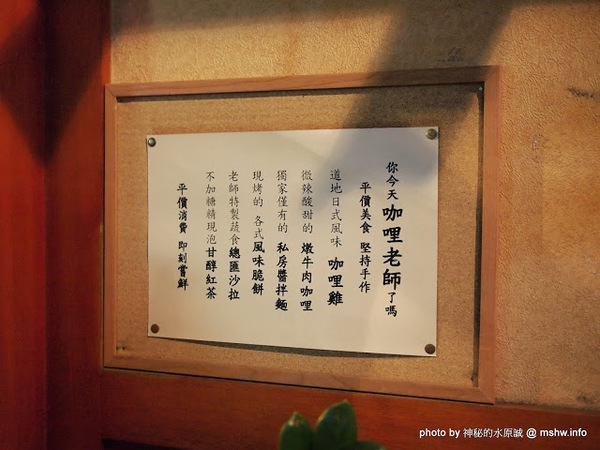 你今天咖哩老師了嗎
平價美食 堅持手作
道地日式風味 咖哩雞
微辣酸甜的 燉牛肉咖哩
獨家僅有的 私房醬拌麵
現烤的 各式風味脆餅
老師特製蔬食總匯沙拉
不加糖精現泡甘醇紅茶
平價消費 即刻嘗鮮
photo by 神秘的水原誠 @ mshw.info